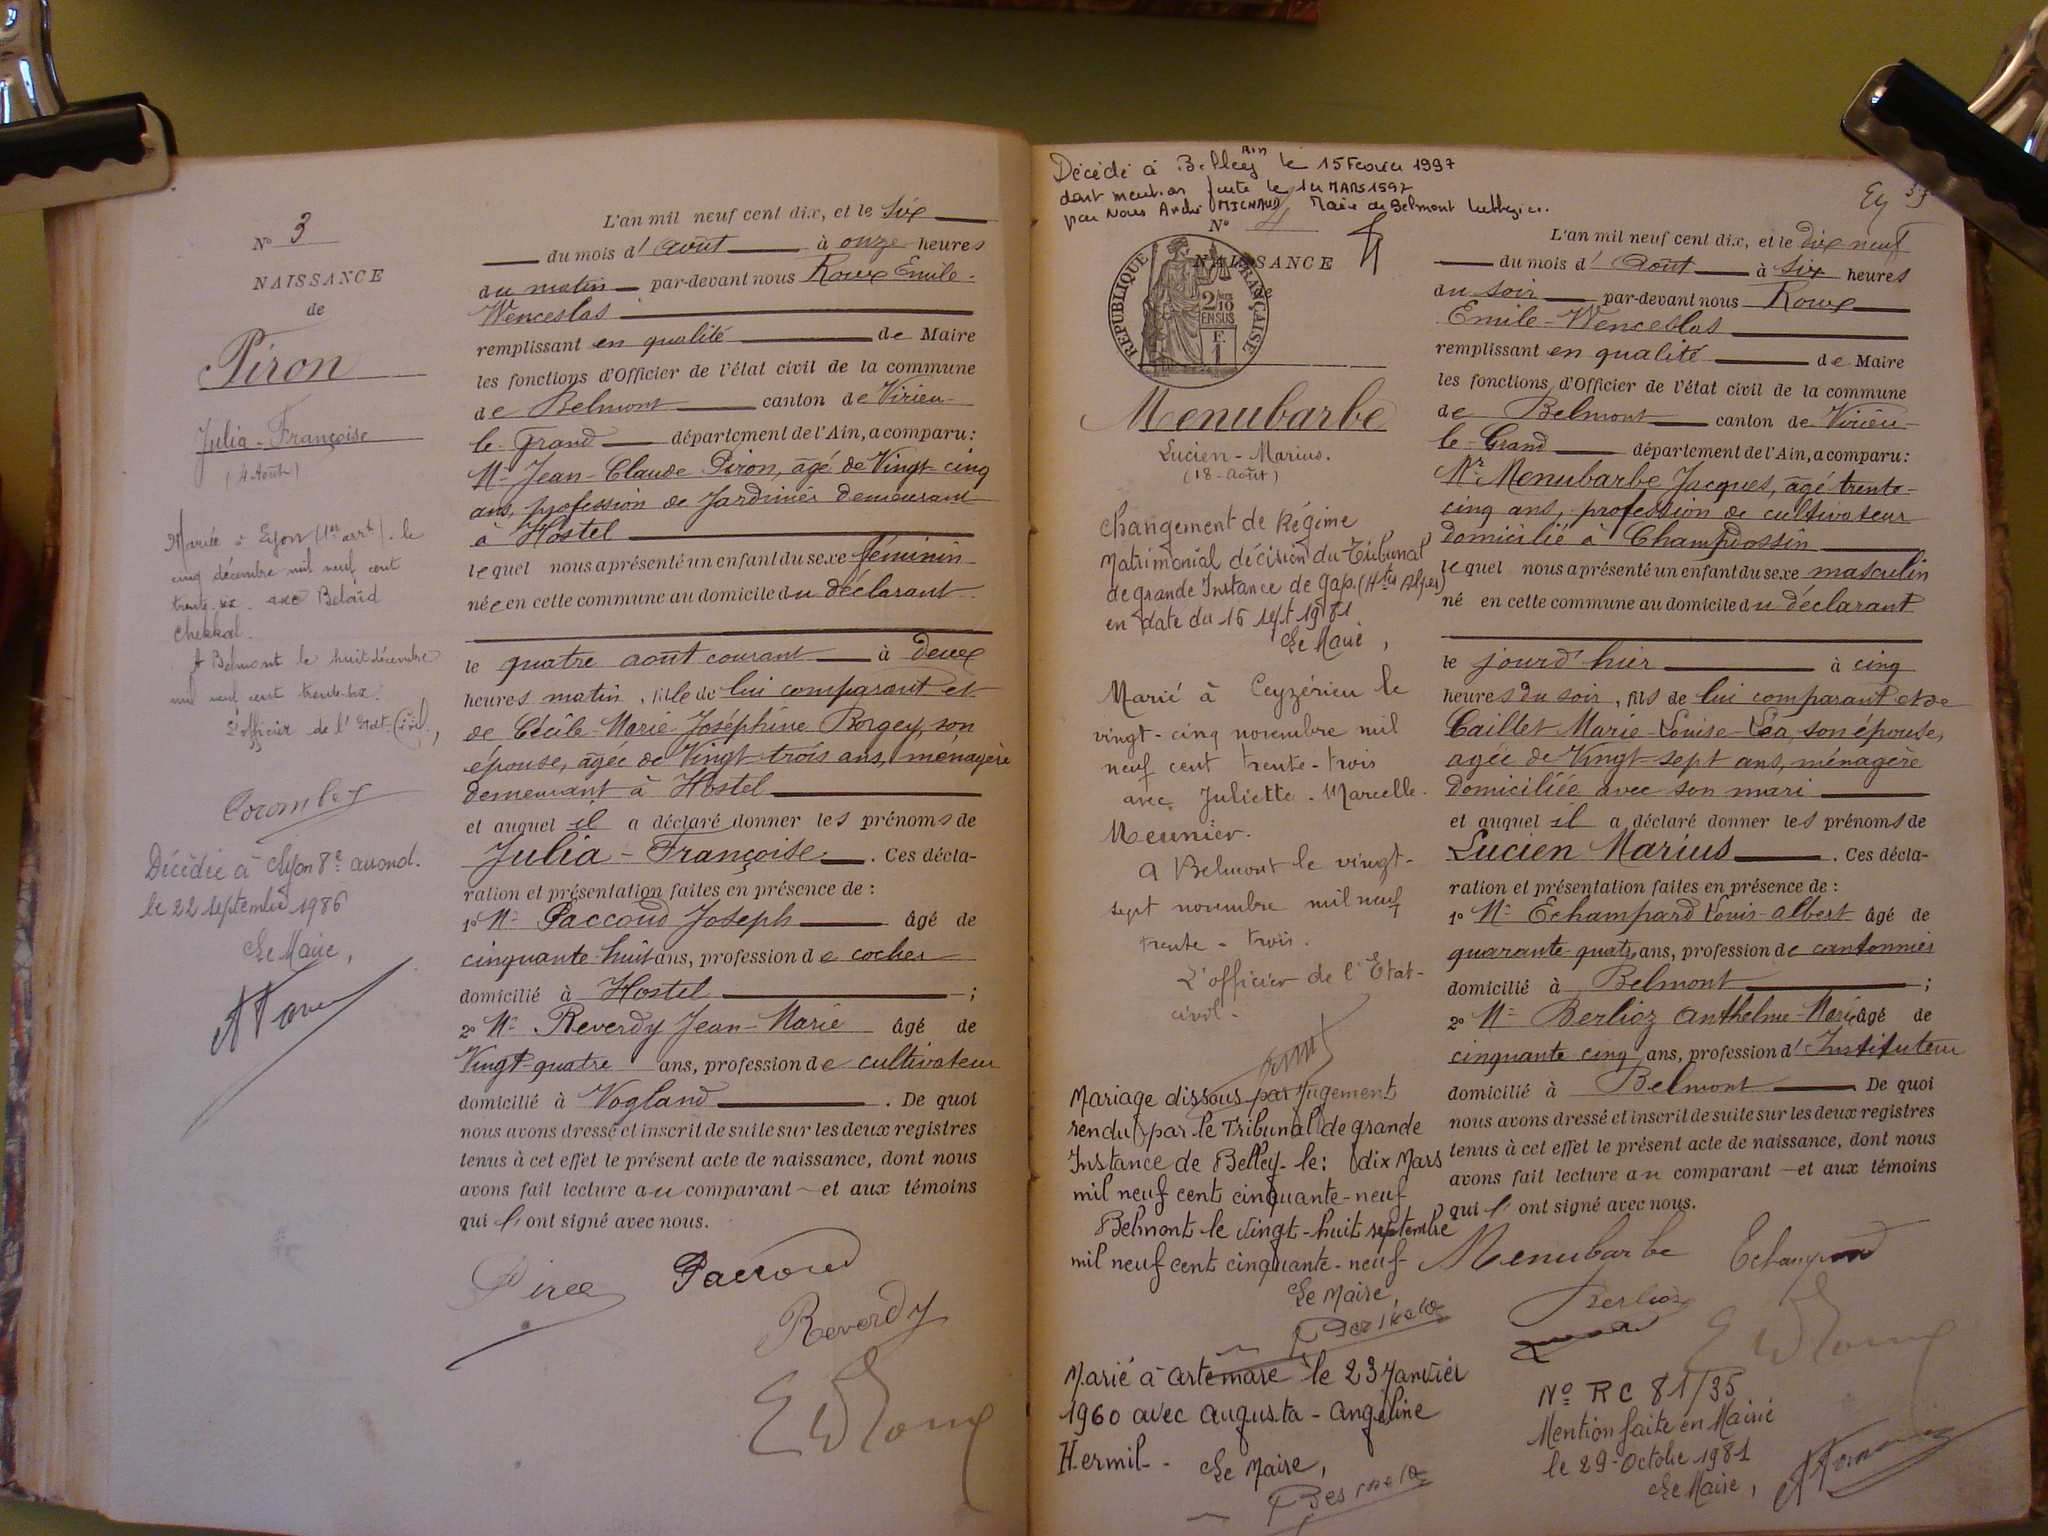 N° 3
NAISSANCE
de
Piron
Julia-Françoise
(4 Août)
Mariée à Lyon (1er arrt) le
cinq décembre mil neuf cent
trente-six avec Belaïd
Chekkal.
A Belmont le huit décembre
mil neuf cent trente-six.
L'officier de l'Etat-Civil,
Décédée à Lyon 8e arrond.
le 22 septembre 1986
Le Maire,
L'an mil neuf cent dix, et le six
du mois d'août à onze heures
du matin par-devant nous Roux Emile-
Wenceslas
remplissant en qualité de Maire
les fonctions d'Officier de l'état civil de la commune
de Belmont canton de Virieu-
le-Grand département de l'Ain, a comparu:
Mr Jean-Claude Piron, âgé de Vingt-cinq
ans, profession de Jardinier demeurant
à Hostel
lequel nous a présenté un enfant du sexe féminin
née en cette commune au domicile du déclarant
le quatre août courant à deux
heures matin, fille de lui comparant et
de Cécile-Marie-Joséphine Borgey, son
épouse, âgée de Vingt-trois ans, ménagère
demeurant à Hostel
et auquel il a déclaré donner les prénoms de
Julia-Françoise. Ces décla-
ration et présentation faites en présence de :
1° Mr Paccoud Joseph âgé de
cinquante-huit ans, profession de cocher
domicilié à Hostel ;
2° Mr Reverdy Jean-Marie âgé de
Vingt-quatre ans, profession de cultivateur
domicilié à Vogland. De quoi
nous avons dressé et inscrit de suite sur les deux registres
tenus à cet effet le présent acte de naissance, dont nous
avons fait lecture au comparant et aux témoins
qui l'ont signé avec nous.
Paccoud
Reverdy
Décédé à Belley Ain le 15 Fevrier 1997
dont mention faite le 1er MARS 1997
par Nous André MICHAUD Maire de Belmont Luthezieu.
N° 4
NAISSANCE
RÉPUBLIQUE FRANÇAISE
2/10
EN SUS
F.
1
Menubarbe
Lucien-Marius.
(18-août)
Changement de Régime
Matrimonial décision du Tribunal
de grande Instance de Gap. (Htes Alpes)
en date du 16 sept 1981
Le Maire,
Marié à Ceyzérieu le
vingt-cinq novembre mil
neuf cent trente-trois
avec Juliette-Marcelle
Meunier.
A Belmont le vingt-
sept novembre mil neuf
trente-trois.
L'officier de l'Etat-
civil.
Mariage dissous par jugement
rendu par le Tribunal de grande
Instance de Belley le: dix Mars
mil neuf cent cinquante-neuf
Belmont le vingt-huit septembre
mil neuf cent cinquante-neuf
Le Maire,
Marié à Artemare le 23 Janvier
1960 avec Augusta-Angéline
Hermil-.
Le Maire,
L'an mil neuf cent dix, et le dix neuf
du mois d'août à six heures
du soir par-devant nous Roux
Emile-Wenceslas
remplissant en qualité de Maire
les fonctions d'Officier de l'état civil de la commune
de Belmont canton de Virieu-
le-Grand département de l'Ain, a comparu:
Mr Menubarbe Jacques, âgé trente-
cinq ans, profession de cultivateur
domicilié à Champdossin
lequel nous a présenté un enfant du sexe masculin
né en cette commune au domicile du déclarant
le jourd'hier à cinq
heures du soir, fils de lui comparant et de
Caillet Marie-Louise-Léa, son épouse,
agée de Vingt-sept ans, ménagère
domiciliée avec son mari
et auquel il a déclaré donner les prénoms de
Lucien Marius. Ces décla-
ration et présentation faites en présence de :
1° Mr Echampard Louis-Albert âgé de
quarante-quatre ans, profession de cantonnier
domicilié à Belmont ;
2° Mr Berlioz Anthelme-Marie âgé de
cinquante-cinq ans, profession d'Instituteur
domicilié à Belmont. De quoi
nous avons dressé et inscrit de suite sur les deux registres
tenus à cet effet le présent acte de naissance, dont nous
avons fait lecture au comparant et aux témoins
qui l'ont signé avec nous.
Menubarbe Echampard
Berlioz
N° RC 81/35
Mention faite en Mairie
le 29-Octobre 1981
Le Maire,